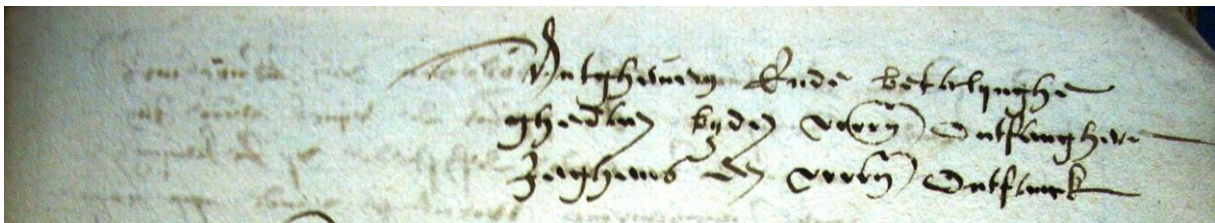 Uutgheven Ende betalinghe
ghedaen byden voorn Ontfanghere
Jeghens den voorn Ontfanck